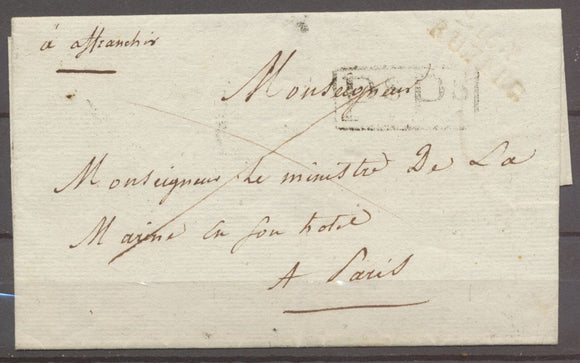 à affranchir
RUELLE
Monseigneur
Monseigneur Le ministre De La
Marine en son hotel
A Paris